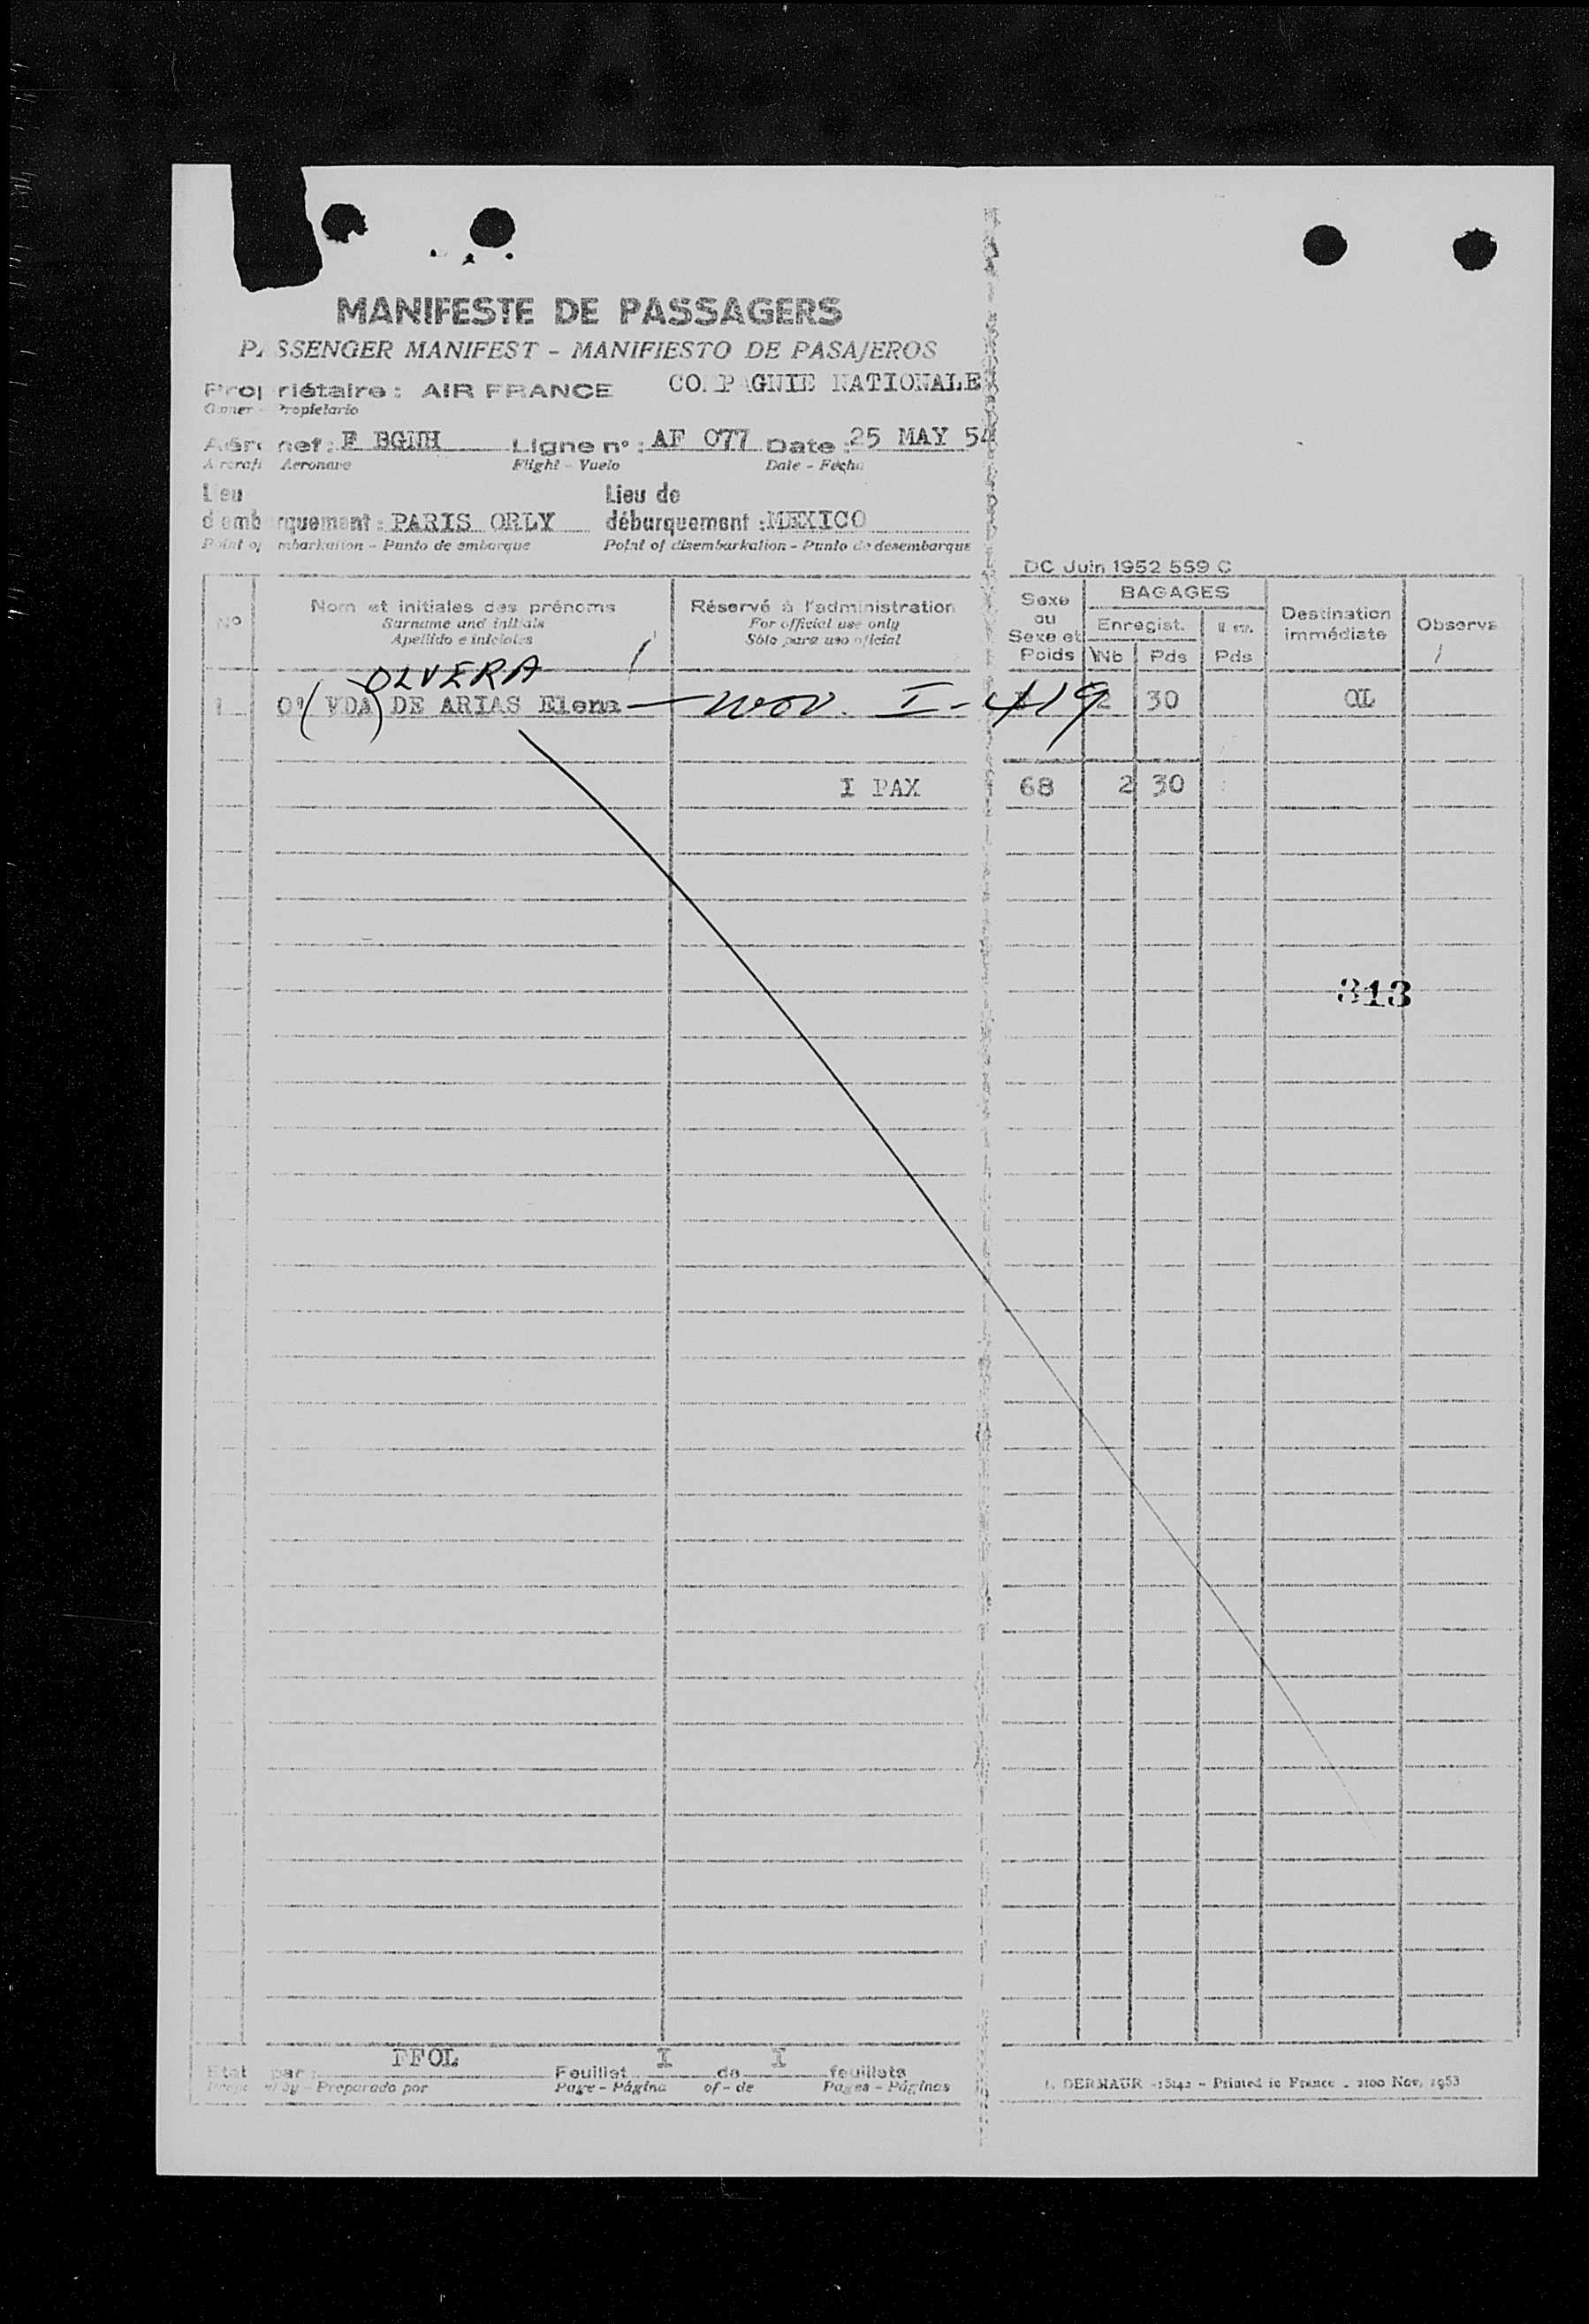 MANIFESTE DE PASSAGERS
PASSENGER MANIFEST - MANIFIESTO DE PASAJEROS
Propriétaire : AIR FRANCE COMPAGNIE NATIONALE
Owner - Propietario
Aéronef : F BGNH Ligne n° : AF 077 Date : 25 MAY 54
Aircraft Aeronave Flight - Vuelo Date - Fecha
Lieu Lieu de
d'embarquement : PARIS ORLY débarquement : MEXICO
Point of embarkation - Punto de embarque Point of disembarkation - Punto de desembarque
DC Juin 1952 559 C
N° Nom et initiales des prénoms Réservé à l'administration Sexe ou Sexe et Poids BAGAGES Destination immédiate Observ
Surname and initials For official use only Enregist. Nb Pds Pds
Apellido e iniciales Sólo para uso oficial
OLVERA
(VDA) DE ARIAS Elena nov. I-419 2 30 OL
I PAX 68 2 30
313
Etabli par : FFOL Feuillet I de I feuillets
Preparado por Page - Página of - de Pages - Páginas
DERMAUR - Printed in France - 2100 Nov. 1953